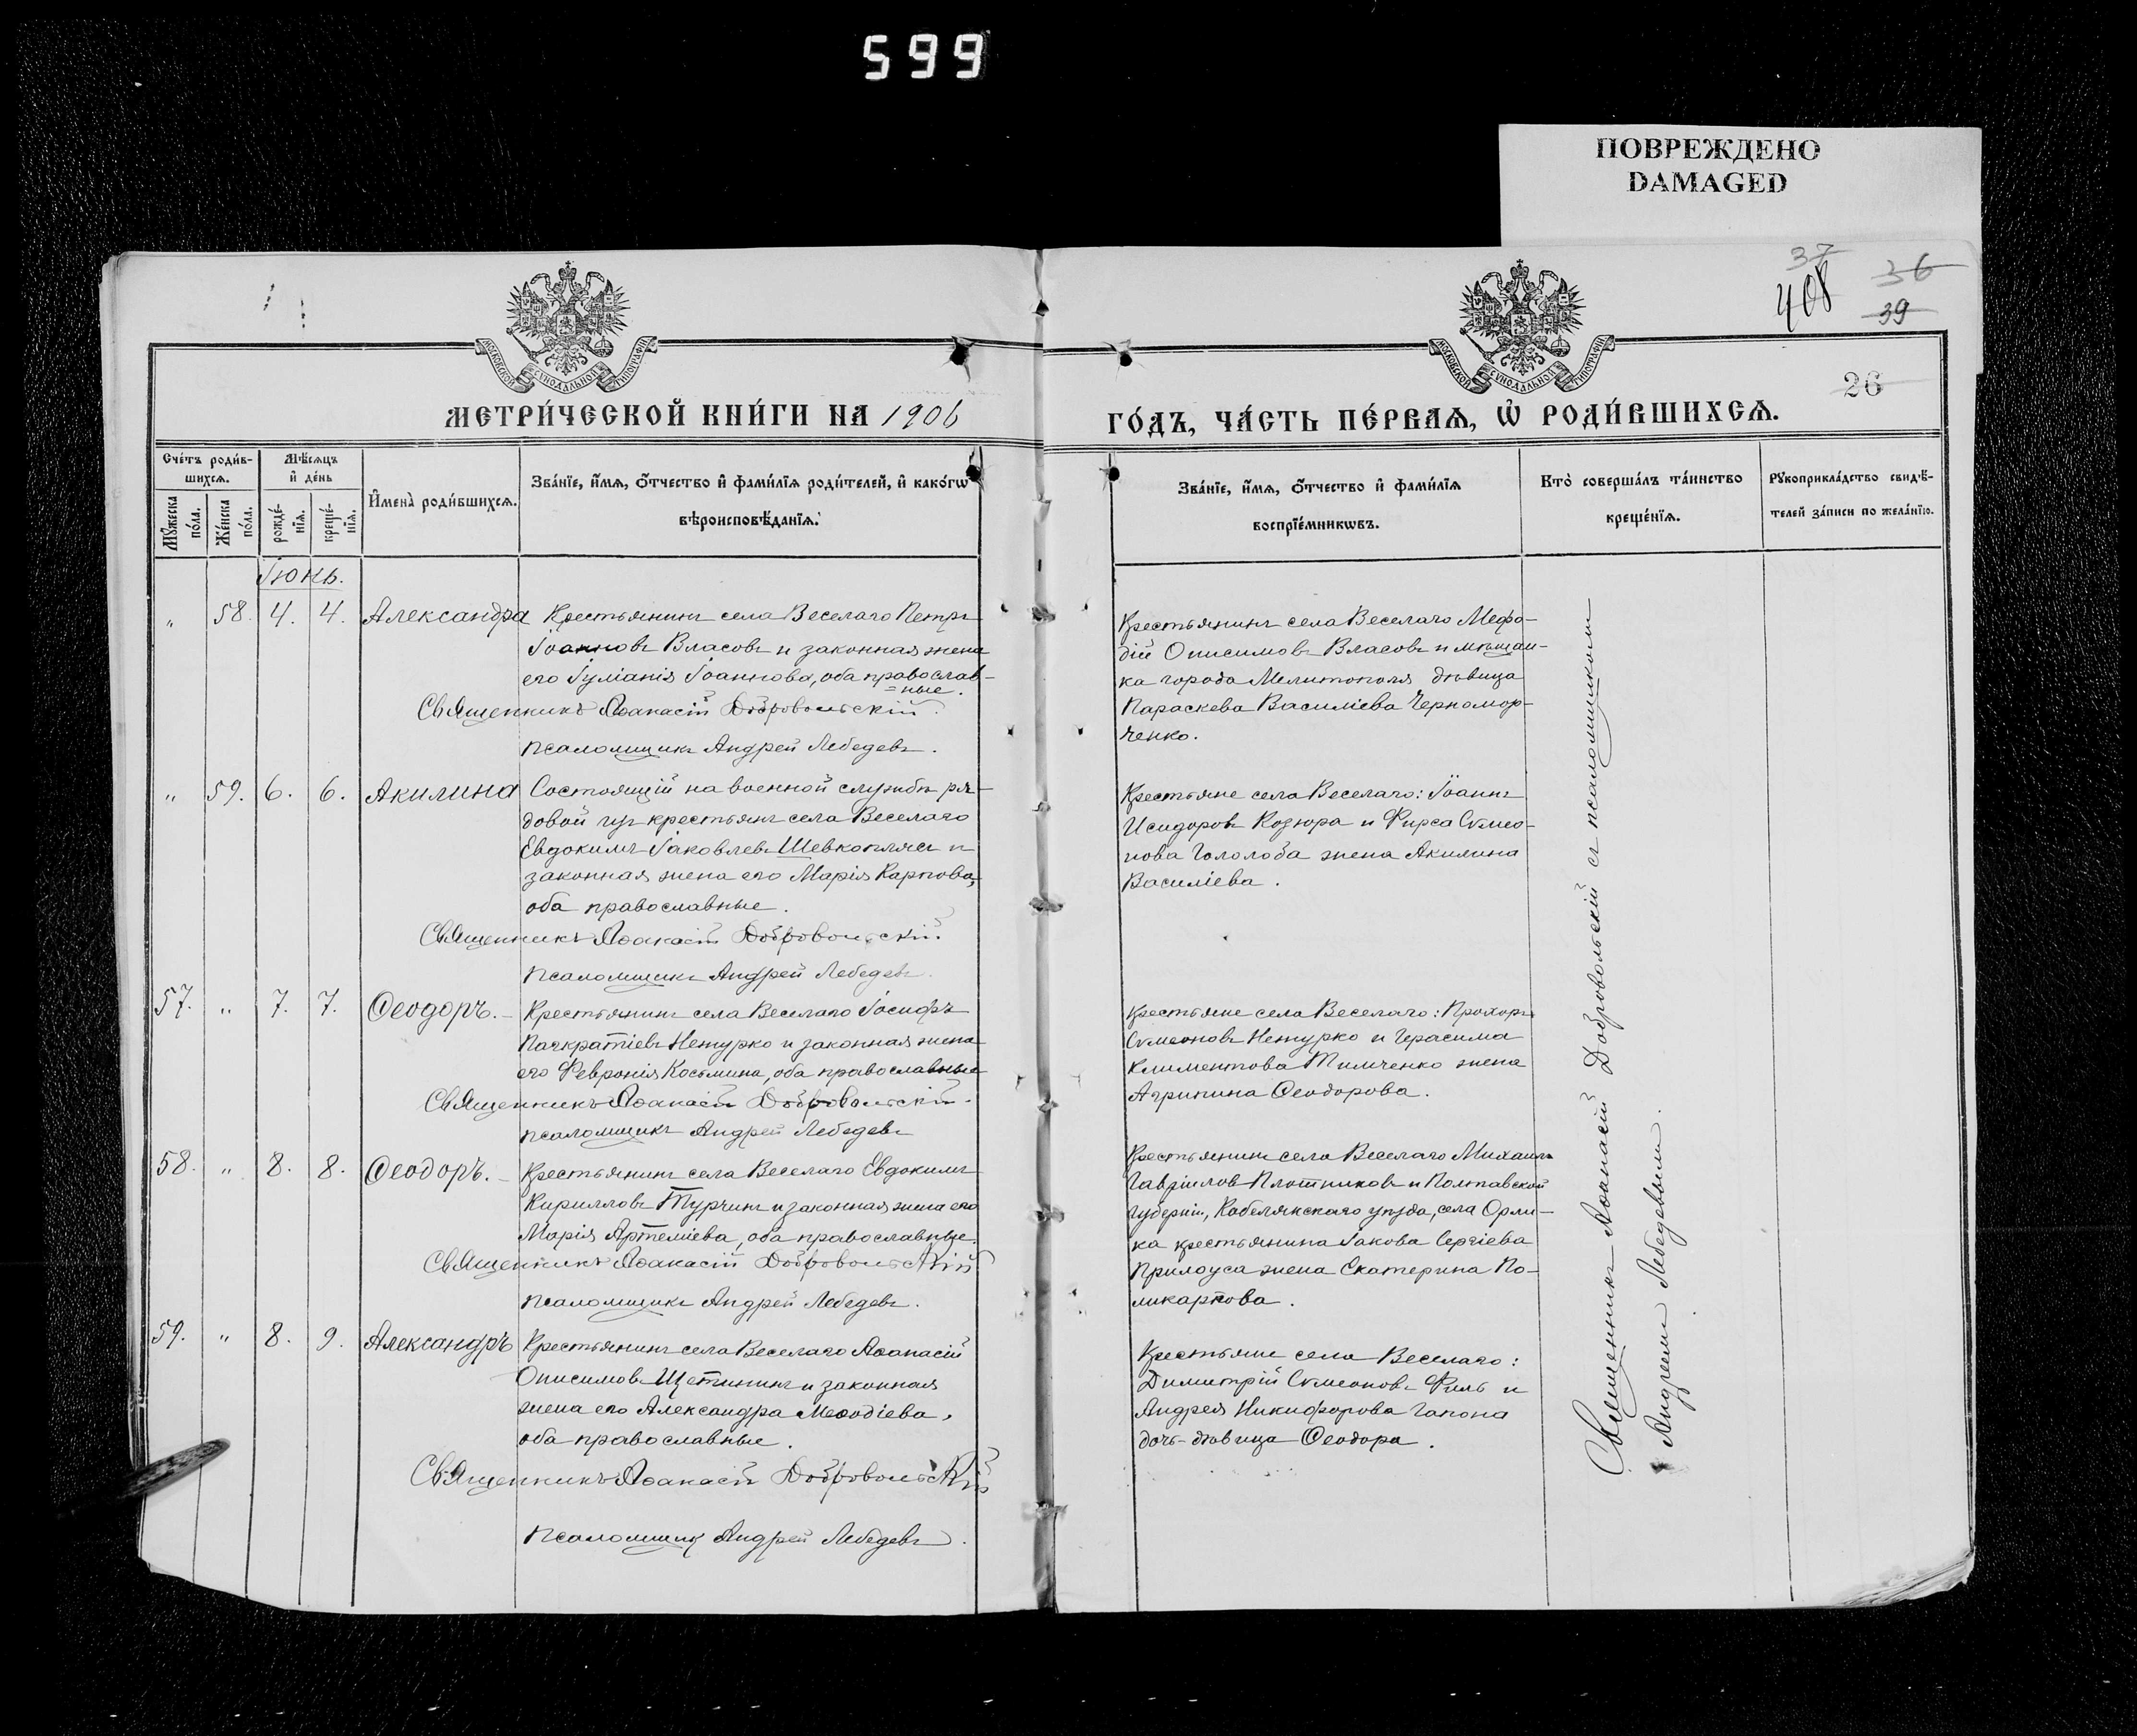 599
ПОВРЕЖДЕНО
DAMAGED
37
408
36
39
26
МОСКОВСКОЙ СѴНОДАЛЬНОЙ ТИПОГРАФІИ
МОСКОВСКОЙ СѴНОДАЛЬНОЙ ТИПОГРАФІИ
МЕТРИ́ЧЕСКОЙ КНИ́ГИ НА 1906
ГО́ДЪ, ЧА́СТЬ ПЕ́РВАѦ, Ѽ РОДИ́ВШИХСѦ.
Сче́тъ роди́в-
шихсѧ.
Мꙋ́жеска
по́ла.
Же́нска
по́ла.
Мѣ́сѧцъ
и҆ де́нь
рожде́-
нїѧ.
креще́-
нїѧ.
И҆мена̀ роди́вшихсѧ.
Зва́нїе, и҆́мѧ, ѻ҆́тчество и҆ фами́лїѧ роди́телей, и҆ како́гѡ
вѣроисповѣ́данїѧ.
Зва́нїе, и҆́мѧ, ѻ҆́тчество и҆ фами́лїѧ
воспрїе́мникѡвъ.
Кто̀ соверша́лъ та́инство
креще́нїѧ.
Рꙋкоприкла́дство свидѣ́-
телей за́писи по жела́нїю.
Іюнь.
" 58. 4. 4. Александра Крестьянинъ села Веселаго Петръ
Іоанновъ Власовъ и законная жена
его Іуліанія Іоаннова, оба православ-
=ные.
Священникъ Аѳанасій Добровольскій.
Псаломщикъ Андрей Лебедевъ.
Крестьянинъ села Веселаго Мефо-
дій Онисимовъ Власовъ и мѣщан-
ка города Мелитополя дѣвица
Параскева Василіева Черномор-
ченко.
" 59. 6. 6. Акилина Состоящій на военной службѣ ря-
довой изъ крестьянъ села Веселаго
Евдокимъ Іаковлевъ Шевкоплясъ и
законная жена его Марія Карпова,
оба православные.
Священникъ Аѳанасій Добровольскій.
Псаломщикъ Андрей Лебедевъ.
Крестьяне села Веселаго: Іоаннъ
Исидоровъ Козюра и Фирса Сѵмео-
нова Гололоба жена Акилина
Василіева.
57. " 7. 7. Ѳеодоръ. Крестьянинъ села Веселаго Іосифъ
Панкратіевъ Нежурко и законная жена
его Февронія Косьмина, оба православные
Священникъ Аѳанасій Добровольскій.
Псаломщикъ Андрей Лебедевъ
Крестьяне села Веселаго: Прохоръ
Сѵмеоновъ Нежурко и Герасима
Климентова Тимченко жена
Агрипина Ѳеодорова.
58. " 8. 8. Ѳеодоръ. Крестьянинъ села Веселаго Евдокимъ
Кирилловъ Турчинъ и законная жена его
Марія Артеміева, оба православные.
Священникъ Аѳанасій Добровольскій
Псаломщикъ Андрей Лебедевъ.
Крестьянинъ села Веселаго Михаилъ
Гавріиловъ Плотниковъ и Полтавской
губерніи, Кобелякскаго уѣзда, села Орли-
ка крестьянина Іакова Сергіева
Прилоуса жена Екатерина По-
ликарпова.
59. " 8. 9. Александръ Крестьянинъ села Веселаго Аѳанасій
Онисимовъ Щетининъ и законная
жена его Александра Меѳодіева,
оба православные.
Священникъ Аѳанасій Добровольскій
Псаломщикъ Андрей Лебедевъ.
Крестьяне села Веселаго:
Димитрій Сѵмеоновъ Филь и
Андрея Никифорова Гапона
дочь-дѣвица Ѳеодора.
Священникъ Аѳанасій Добровольскій съ псаломщикомъ
Андреемъ Лебедевымъ.